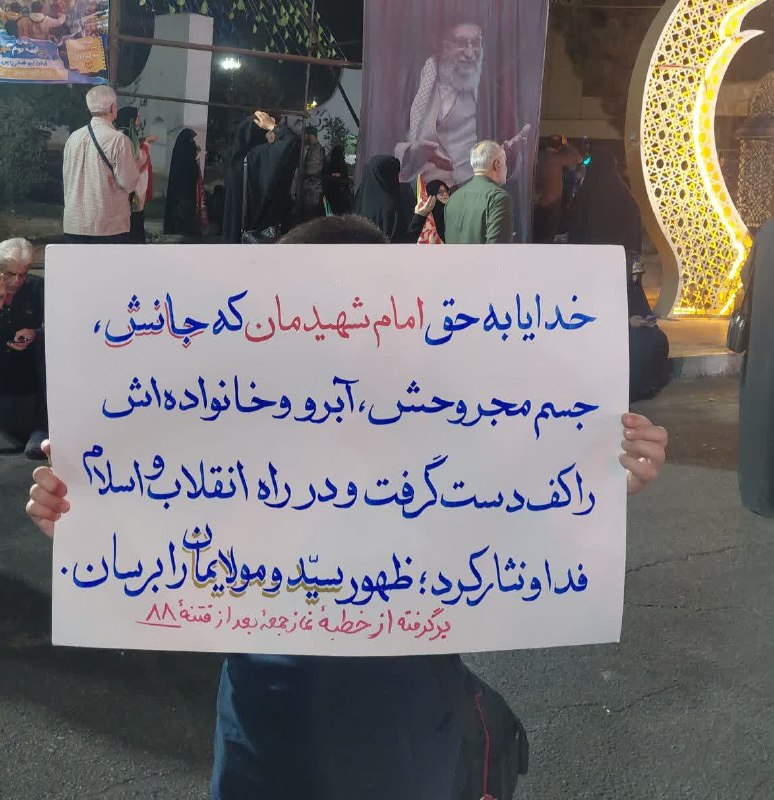 خدایا به حق امام شهیدمان که جانش،
جسم مجروحش، آبرو و خانواده‌اش
را کف دست گرفت و در راه انقلاب و اسلام
فدا و نثار کرد؛ ظهور سیّد و مولایمان را برسان.
برگرفته از خطبهٔ نماز جمعهٔ بعد از فتنهٔ ۸۸